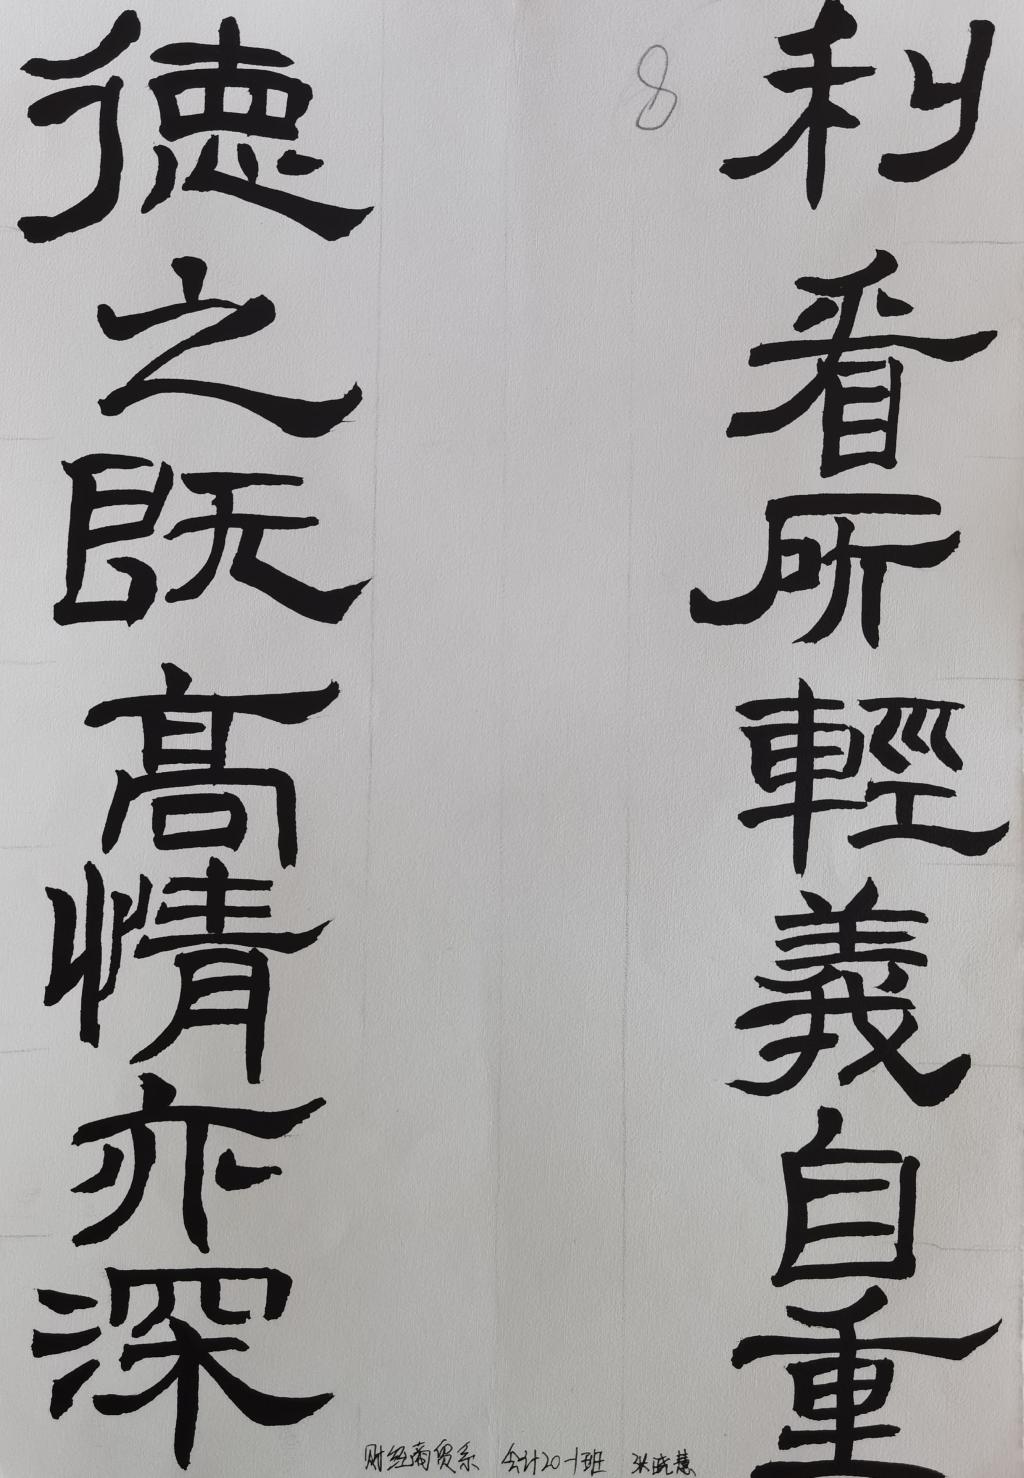 利看所輕義自重
德之既高情亦深
8
财经商贸系 会计20-1班 张晓慧